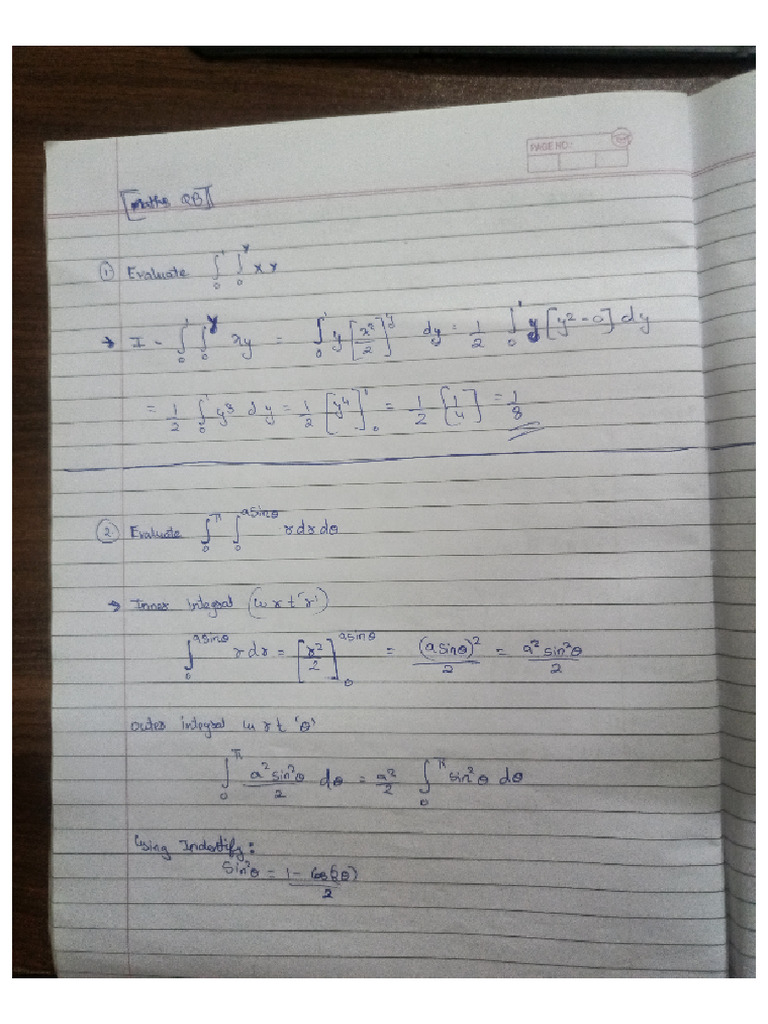 PAGE NO.:
[Maths QB]
① Evaluate ∫₀¹ ∫₀ʸ x y
→ I = ∫₀¹ ∫₀ʸ xy = ∫₀¹ y [x²/2]₀ʸ dy = 1/2 ∫₀¹ y [y² - 0] dy
= 1/2 ∫₀¹ y³ dy = 1/2 [y⁴]₀¹ = 1/2 [1/4] = 1/8
② Evaluate ∫₀^π ∫₀^(a sinθ) r dr dθ
→ Inner integral (w r t 'r')
∫₀^(a sinθ) r dr = [r²/2]₀^(a sinθ) = (a sinθ)²/2 = a² sin²θ/2
outer integral w r t 'θ'
∫₀^π a² sin²θ/2 dθ = a²/2 ∫₀^π sin²θ dθ
Using Indentify:
Sin²θ = 1 - cos(2θ)/2